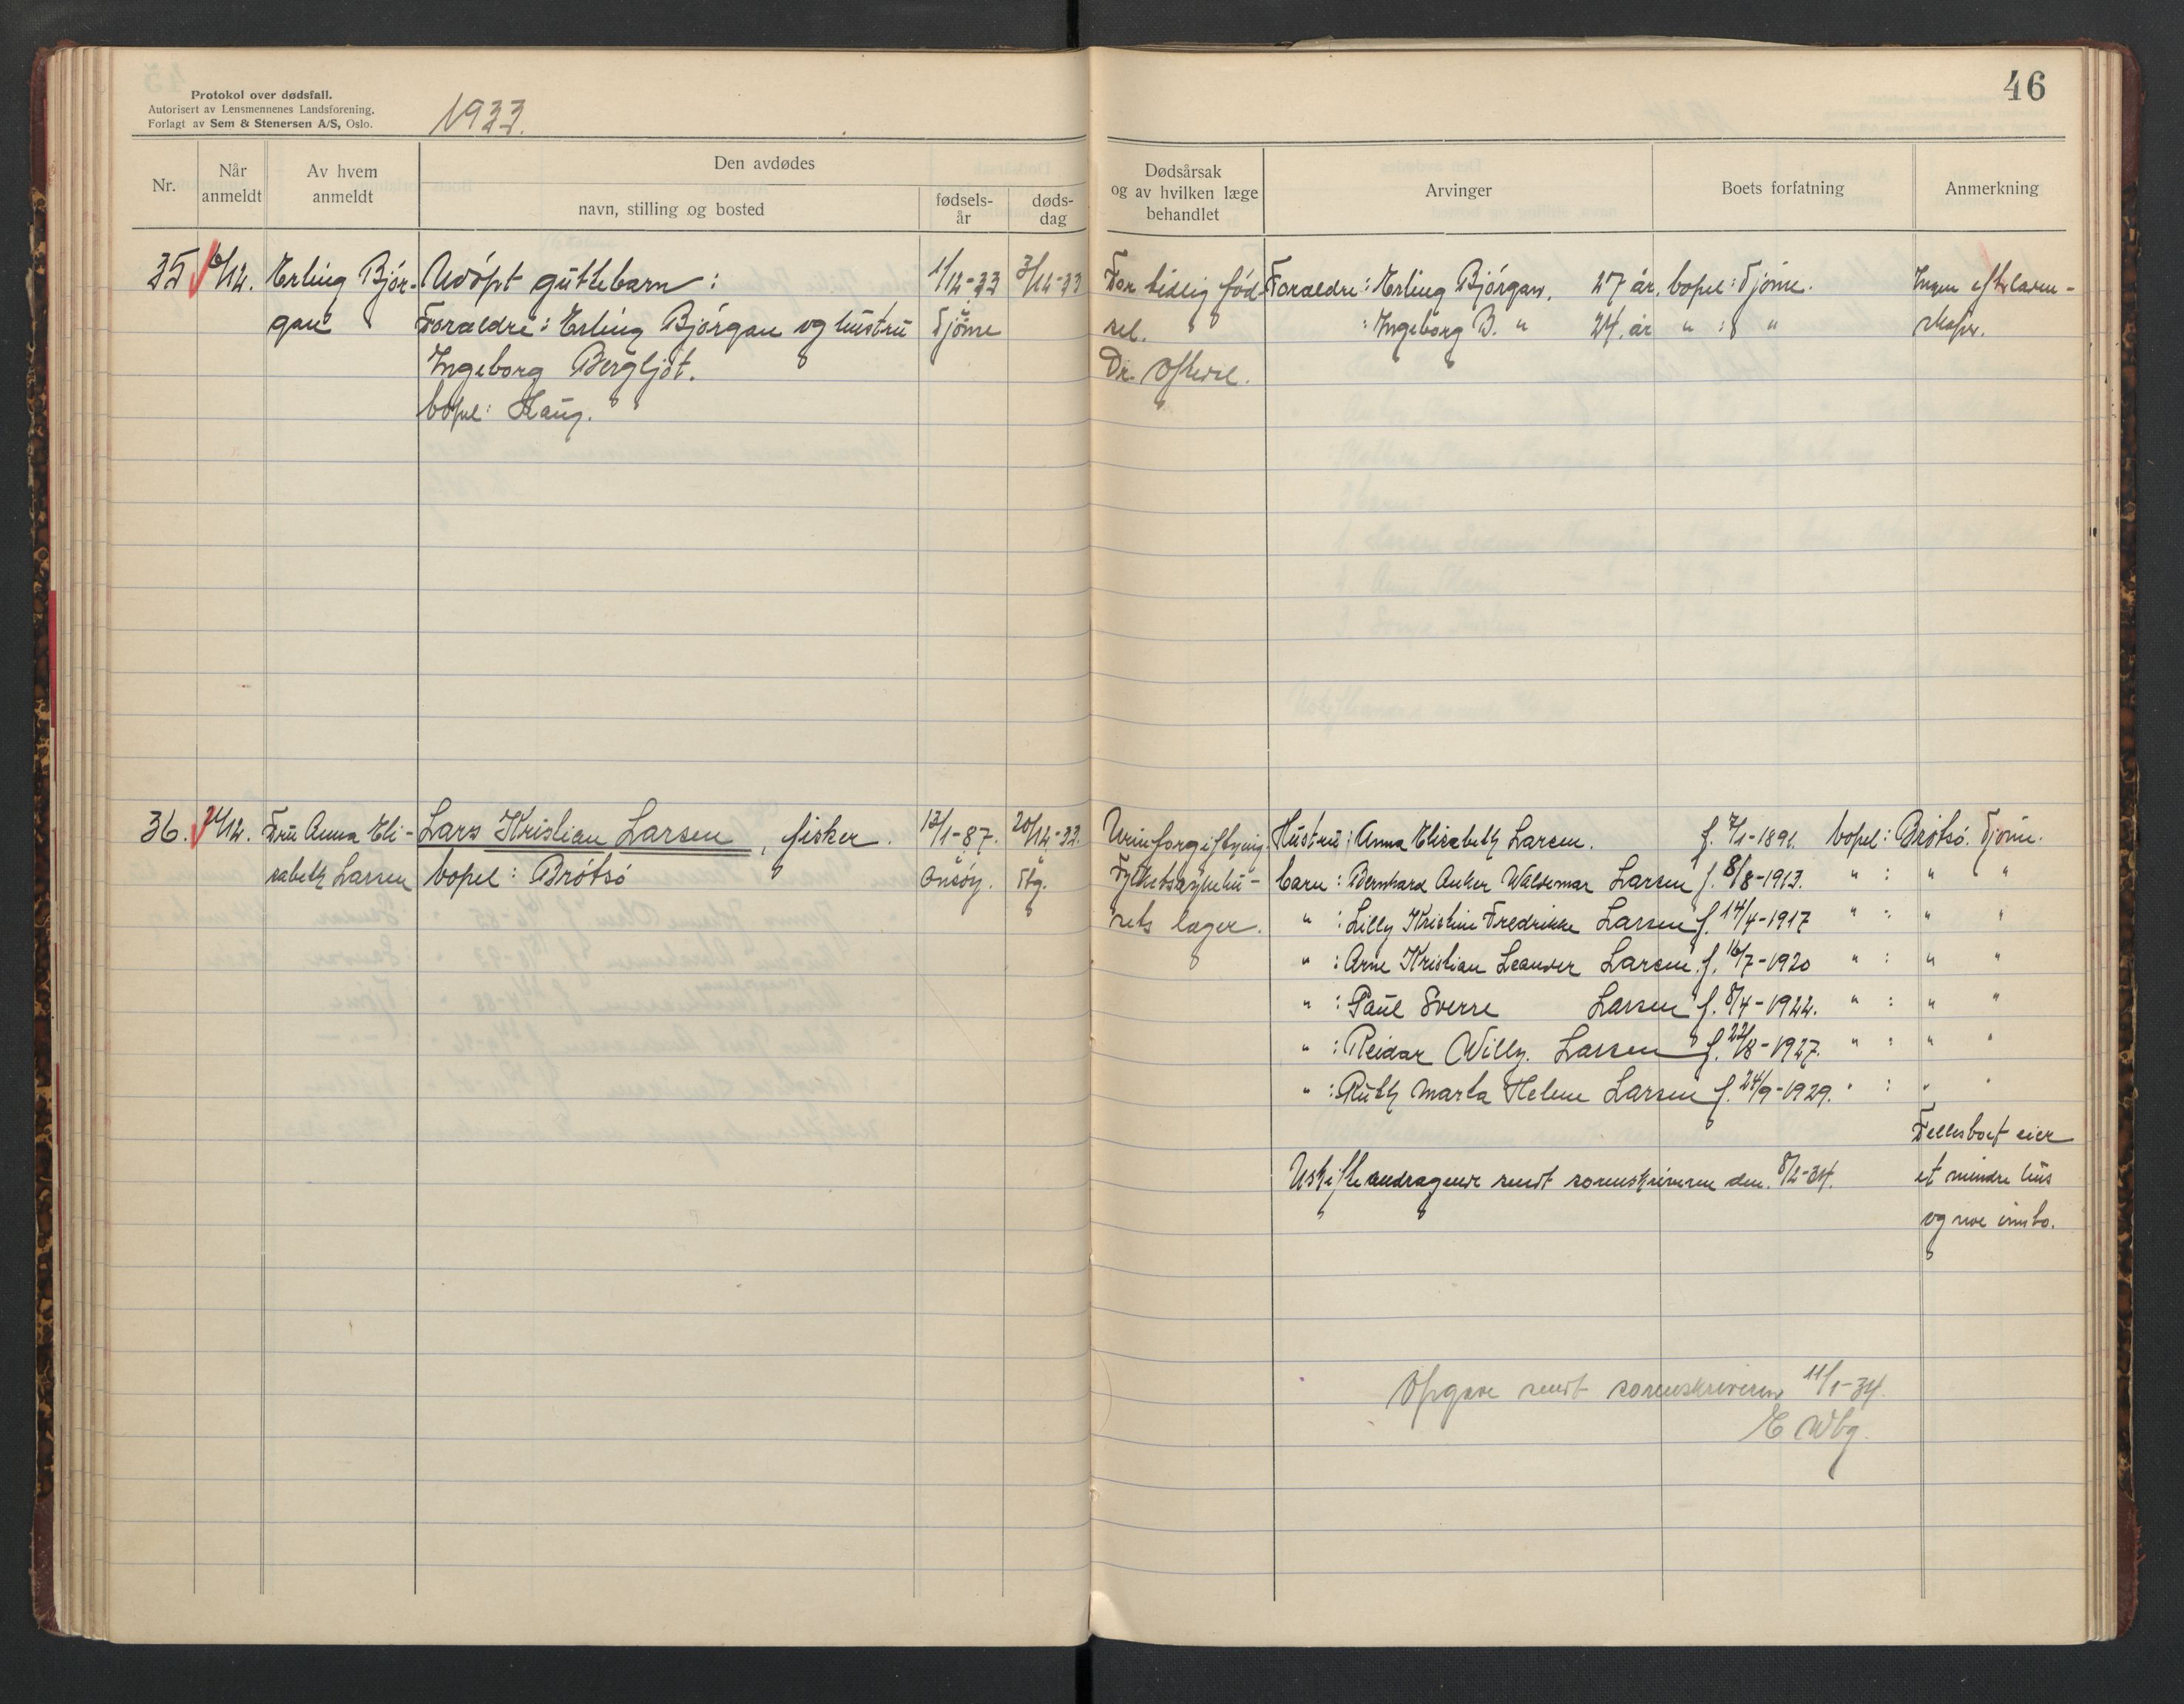 Protokol over dødsfall.
Autorisert av Lensmennenes Landsforening.
Forlagt av Sem & Stenersen A/S, Oslo.
1933.
46
Nr.
Når anmeldt
Av hvem anmeldt
Den avdødes
navn, stilling og bosted
fødsels-år
døds-dag
Dødsårsak og av hvilken læge behandlet
Arvinger
Boets forfatning
Anmerkning
35 6/12. Erling Bjør- Udöpt guttebarn: 1/12-33 3/12-33 For tidlig fød- Foraeldre: Erling Bjørgan. 27 år. bopel: Tjöme. Ingen efterlaten-
gan Foraeldre: Erling Bjørgan og hustru Tjöme sel. : Ingeborg B. " 24. år " : " skaper.
Ingeborg Bergljot. Dr.
bopel: Haug.
36. 21/12. Fru Anna Eli- Lars Kristian Larsen, fisker. 13/1-87. 20/12-33. Urinforgiftning. Hustru: Anna Elisabeth Larsen. f. 7/1-1891. bopel: Brötsö. Tjöme.
sabeth Larsen bopel: Brötsö Onsöy. Tbg. Fylkessykehu- barn: Bernhard Anker Waldemar Larsen f. 8/8-1913. " : " "
sets læger. " : Lilly Kristine Fredrikke Larsen f. 14/4-1917 " : " "
" : Arne Kristian Leander Larsen. f. 16/7-1920 " : " "
" : Paul Sverre Larsen f. 8/4-1922. " : " "
" : Reidar Willy. Larsen f. 22/8-1927. " : " "
" : Ruth Marta Helene Larsen f. 24/9-1929. " : " "
Fellesboet eier
Uskifteandragende sendt sorenskriveren den. 8/1-34. et mindre hus
og noe innbo.
Opgave sendt sorenskriveren 11/1-34.
E Wbg.